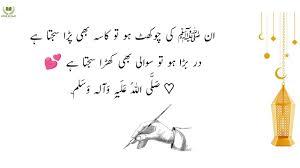 ان ﷺ کی چوکھٹ ہو تو کاسہ بھی پڑا سجتا ہے
در بڑا ہو تو سوالی بھی کھڑا سجتا ہے 💕
♡ صَلَّی اللہُ عَلَیْہِ وَآلِہ وَسَلَّم.